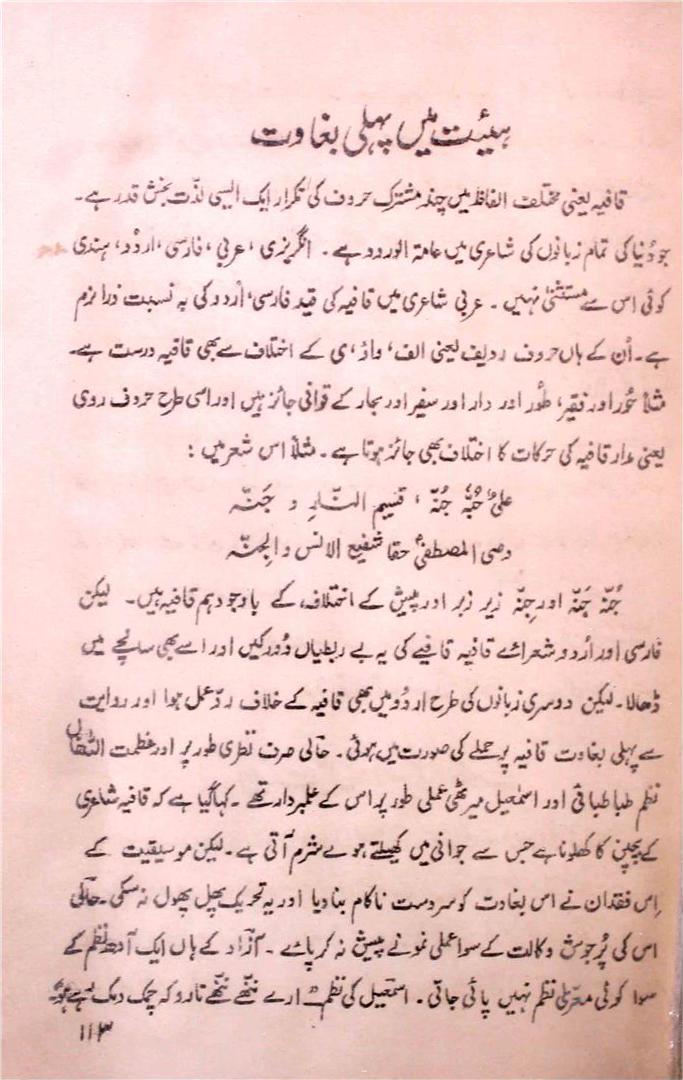 ہیئت میں پہلی بغاوت
قافیہ یعنی مختلف الفاظ میں چند مشترک حروف کی تکرار ایک ایسی لذّت بخش قدر ہے۔
جو دُنیا کی تمام زبانوں کی شاعری میں عامۃ الورود ہے۔ انگریزی، عربی، فارسی، اردو، ہندی
کوئی اس سے مستثنیٰ نہیں۔ عربی شاعری میں قافیہ کی قید فارسی، اُردو کی بہ نسبت ذرا نرم
ہے۔ اُن کے ہاں حروف ردیف یعنی الف، واؤ، ی کے اختلاف سے بھی قافیہ درست ہے۔
مثلاً حُور اور فقیر، طُور اور دار اور سفیر اور بحار کے قوافی جائز ہیں اور اسی طرح حروف روی
یعنی مدار قافیہ کی حرکات کا اختلاف بھی جائز ہوتا ہے۔ مثلاً اس شعر میں:
علیؑ حُبُّہٗ جُنّہ، قسیم النّارِ و جَنّہ
وصی المصطفیٰؐ حقا شفیع الانس والجِنّہ
جُنّہ جَنّہ اور جِنّہ زیر زبر اور پیش کے اختلاف کے باوجود ہم قافیہ ہیں۔ لیکن
فارسی اور اُردو شعرا نے قافیہ کی یہ بے ربطیاں دُور کیں اور اسے بھی سانچے میں
ڈھالا۔ لیکن دوسری زبانوں کی طرح اردو میں بھی قافیہ کے خلاف ردّ عمل ہوا اور روایت
سے پہلی بغاوت قافیہ پر حملے کی صورت میں ہوئی۔ حالی صرف نظری طور پر اور عظمت اللہ خاں
نظم طباطبائی اور اسمٰعیل میرٹھی عملی طور پر اس کے علمبردار تھے۔ کہا گیا ہے کہ قافیہ شاعری
کے بچپن کا کھلونا ہے جس سے جوانی میں کھیلتے ہوے شرم آتی ہے۔ لیکن موسیقیت کے
اِس فقدان نے اس بغاوت کو سردست ناکام بنا دیا اور یہ تحریک پھل پھول نہ سکی۔ حالی
اس کی پُرجوش وکالت کے سوا عملی نمونے پیش نہ کر پائے۔ آزاد کے ہاں ایک آدھ نظم کے
سوا کوئی معرّیٰ نظم نہیں پائی جاتی۔ اسمٰعیل کی نظم "ارے ننّھے ننّھے تارو کہ چمک دمک رہے ہو"
۱۱۳